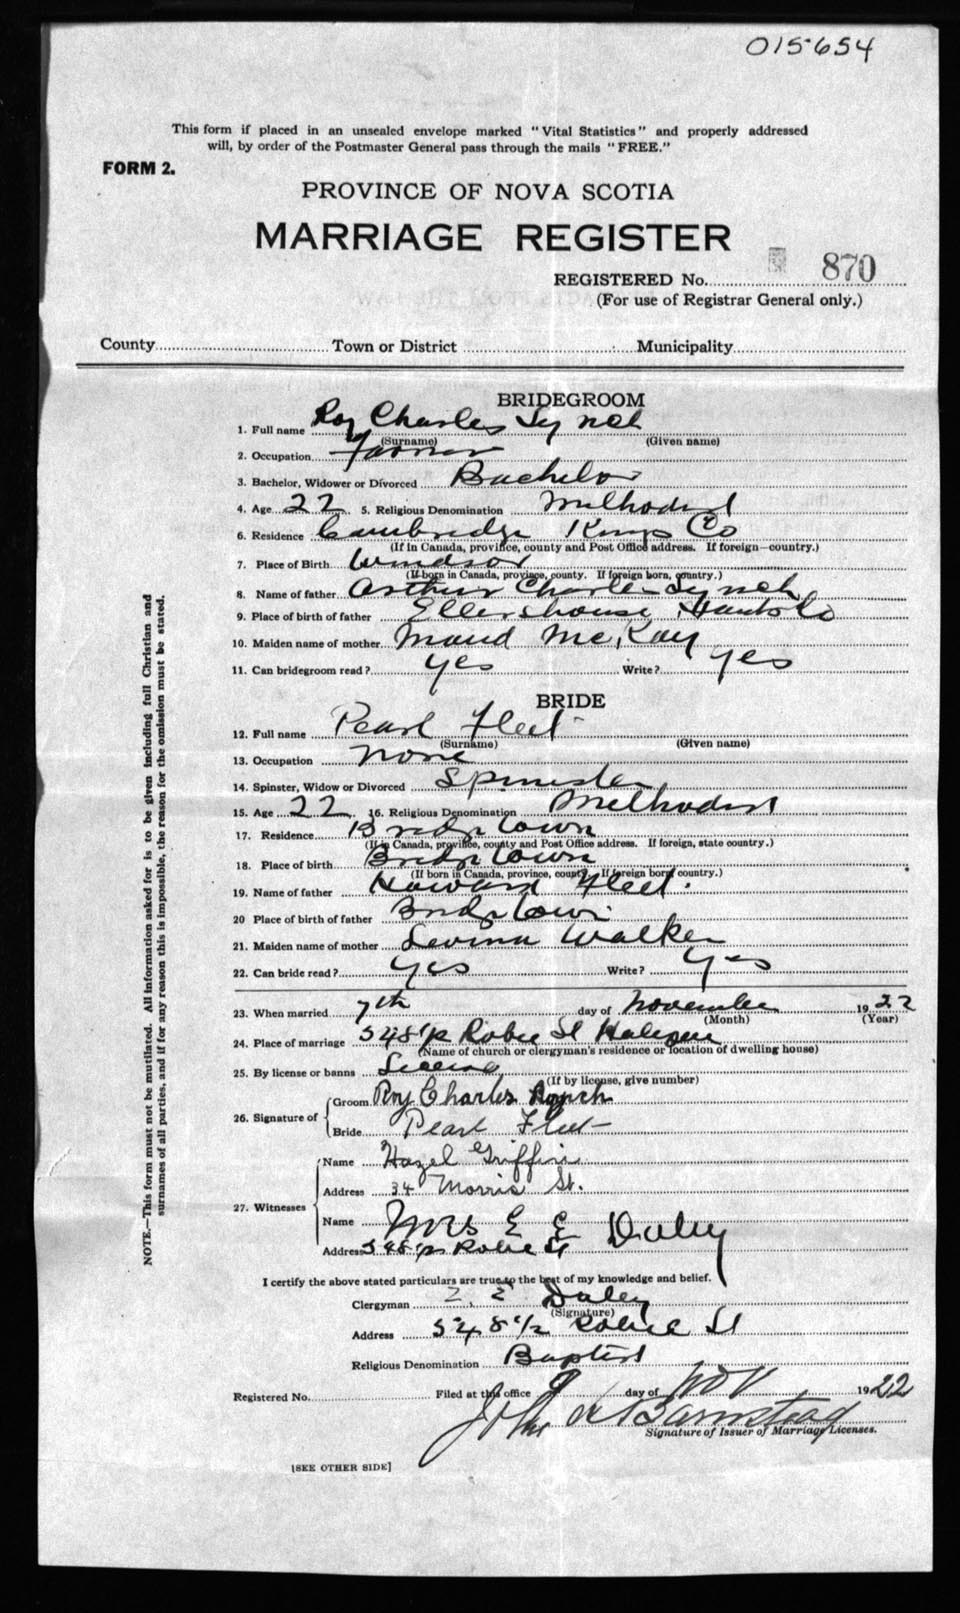 015654
This form if placed in an unsealed envelope marked "Vital Statistics" and properly addressed
will, by order of the Postmaster General pass through the mails "FREE."
FORM 2.
PROVINCE OF NOVA SCOTIA
MARRIAGE REGISTER
REGISTERED No. 870
(For use of Registrar General only.)
County Town or District Municipality
BRIDEGROOM
1. Full name Roy Charles Lynch
(Surname) (Given name)
2. Occupation Farmer
3. Bachelor, Widower or Divorced Bachelor
4. Age 22 5. Religious Denomination Methodist
6. Residence Cambridge Kings Co
(If in Canada, province, county and Post Office address. If foreign—country.)
7. Place of Birth Windsor
(If born in Canada, province, county. If foreign born, country.)
8. Name of father Arthur Charles Lynch
9. Place of birth of father Ellershouse, Hants Co
10. Maiden name of mother Maud McKay
11. Can bridegroom read? yes Write? yes
BRIDE
12. Full name Pearl Fleet
(Surname) (Given name)
13. Occupation None
14. Spinster, Widow or Divorced Spinster
15. Age 22 16. Religious Denomination Methodist
17. Residence Bridgetown
(If in Canada, province, county and Post Office address. If foreign, state country.)
18. Place of birth Bridgetown
(If born in Canada, province, county. If foreign born country.)
19. Name of father Howard Fleet.
20 Place of birth of father Bridgetown
21. Maiden name of mother Walker
22. Can bride read? yes Write? yes
23. When married 7th day of November 1922
(Month) (Year)
24. Place of marriage 548 1/2 Robie St Halifax
(Name of church or clergyman's residence or location of dwelling house)
25. By license or banns License
(If by license, give number)
26. Signature of Groom Roy Charles Lynch
Bride Pearl Fleet
27. Witnesses Name Hazel Griffin
Address 34 Morris St.
Name Mrs E E Daley
Address 548 1/2 Robie St
I certify the above stated particulars are true to the best of my knowledge and belief.
Clergyman E. E. Daley
(Signature)
Address 548 1/2 Robie St
Religious Denomination Baptist
Registered No. Filed at this office 9 day of Nov 1922
John Barnstead
Signature of Issuer of Marriage Licenses.
[SEE OTHER SIDE]
NOTE.—This form must not be mutilated. All information asked for is to be given including full Christian and
surnames of all parties, and if for any reason this is impossible, the reason for the omission must be stated.